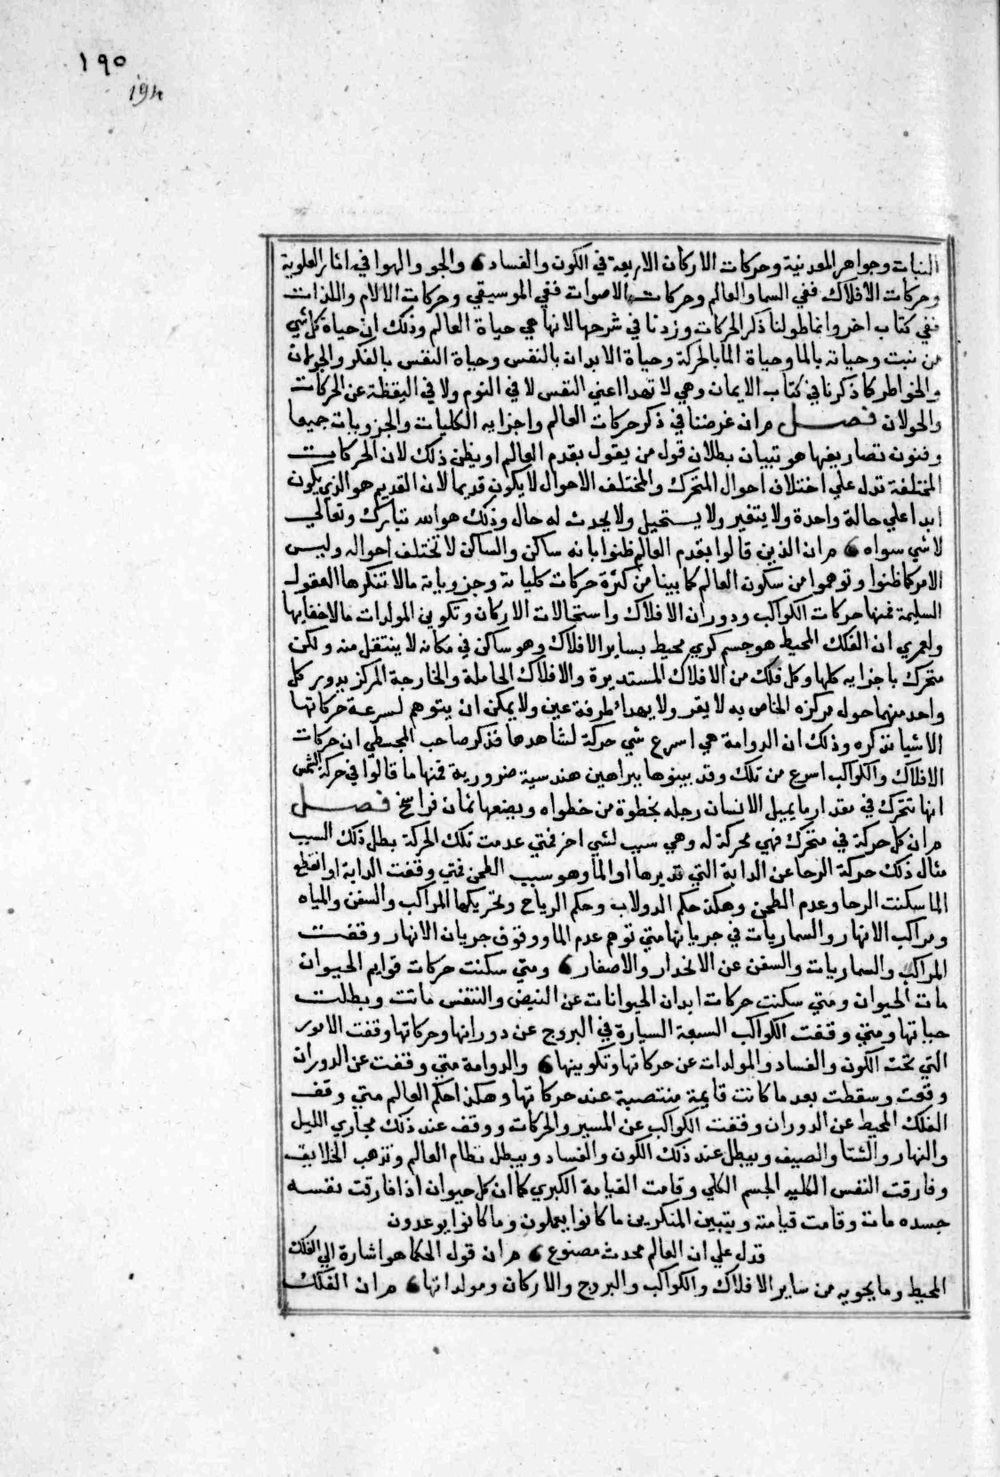 ١٩٥
١٩٤
النبات وجواهر المعدنية وحركات الاركان الاربعة في الكون والفساد ه والجو والهوا في اثار العلوية
وحركات الافلاك ففي السما والعالم وحركات الاصوات ففي الموسيقي وحركات الالام واللذات
ففي كتاب اخر وانما طولنا ذكر الحركات وزدنا في شرحها لانها هي حياة العالم وذلك ان حياة كل شي
من نبت وحياته بالما وحياة الما بالحركة وحياة الابدان بالنفس وحياة النفس بالفكر والجولان
والخواطر كما ذكرنا في كتاب الايمان وهي لا تهدا اعني النفس لا في النوم ولا في اليقظة عن الحركات
والجولان فصل مران غرضنا في ذكر حركات العالم واجزايه الكليات والجزويات جميعا
وفنون تصاريفها هو تبيان بطلان قول من يقول بقدم العالم او يظن ذلك لان الحركات
المختلفة تدل علي اختلاف احوال المتحرك والمختلف الاحوال لا يكون قديما لان القديم هو الذي يكون
ابدا علي حالة واحدة ولا يتغير ولا يستحيل ولا يحدث له حال وذلك هو الله تبارك وتعالي
لا شي سواه ه مران الذين قالوا بقدم العالم ظنوا بانه ساكن والساكن لا تختلف احواله وليس
الامر كما ظنوا وتوهموا من سكون العالم كما بينا من كثرة حركات كلياته وجزوياته مالا تنكرها العقول
السليمة فمنها حركات الكواكب ودوران الافلاك واستحالات الاركان وتكوين المولدات مالا خفا بها
ولعمري ان الفلك المحيط هو جسم كري محيط بساير الافلاك وهو ساكن في مكانه لا ينتقل منه ولكن
متحرك باجزايه كلها وكل فلك من الافلاك المستديرة والافلاك الحاملة والخارجة المركز يدور كل
واحد منهما حول مركزه الخاص به لا يقر ولا يهدا طرفة عين ولا يمكن ان يتوهم لسرعة حركاتها
الاشيا نذكره وذلك ان الدوامة هي اسرع شي حركة نشاهدها فذكر صاحب المجسطي ان حركات
الافلاك والكواكب اسرع من تلك وقد بينوها ببراهين هندسية ضرورية فمنها ما قالوا في حركة الشمس
انها تتحرك في مقدار ما يميل الانسان رجله بخطوة من خطواه ويضعها ثمان فراسخ فصل
مران كل حركة في متحرك فهي محركة له وهي سبب لشي اخر فمتي عدمت تلك الحركة بطل ذلك السبب
مثال ذلك حركة الرحا عن الدابة التي تديرها او الما وهو سبب الطحن فمتي وقفت الدابة او انقطع
الما سكنت الرحا وعدم الطحن وهكذي حكم الدولاب وحكم الرياح وتحريكها المراكب والسفن والمياه
ومراكب الانهار والسماريات في جريانها متي توهم عدم الما ووقوف جريان الانهار وقفت
المراكب والسماريات والسفن عن الانحدار والاصعار ه ومتي سكنت حركات قوايم الحيوان
مات الحيوان ومتي سكنت حركات ابدان الحيوانات عن النبض والتنفس ماتت وبطلت
حياتها ومتي وقفت الكواكب السبعة السيارة في البروج عن دورانها وحركاتها وقفت الامور
التي تحت الكون والفساد والمولدات عن حركاتها وتكوينها ه والدوامة متي وقفت عن الدوران
وقعت وسقطت بعد ما كانت قايمة منتصبة عند حركاتها وهكذي احكم العالم متي وقف
الفلك المحيط عن الدوران وقفت الكواكب عن المسير والحركات ووقف عند ذلك مجاري الليل
والنهار والشتا والصيف ويبطل عند ذلك الكون والفساد ويبطل نظام العالم وتذهب الخلايق
وفارقت النفس الكليه الجسم الكلي وقامت القيامة الكبري كما ان كل حيوان اذا فارقت نفسه
جسده مات وقامت قيامته ويتبين المنكرين ما كانوا يعملون وما كانوا يوعدون
فدل علي ان العالم محدث مصنوع ه مران قول الحكما هو اشارة الي الفلك
المحيط وما يحويه من ساير الافلاك والكواكب والبروج والاركان ومولداتها ه مران الفلك